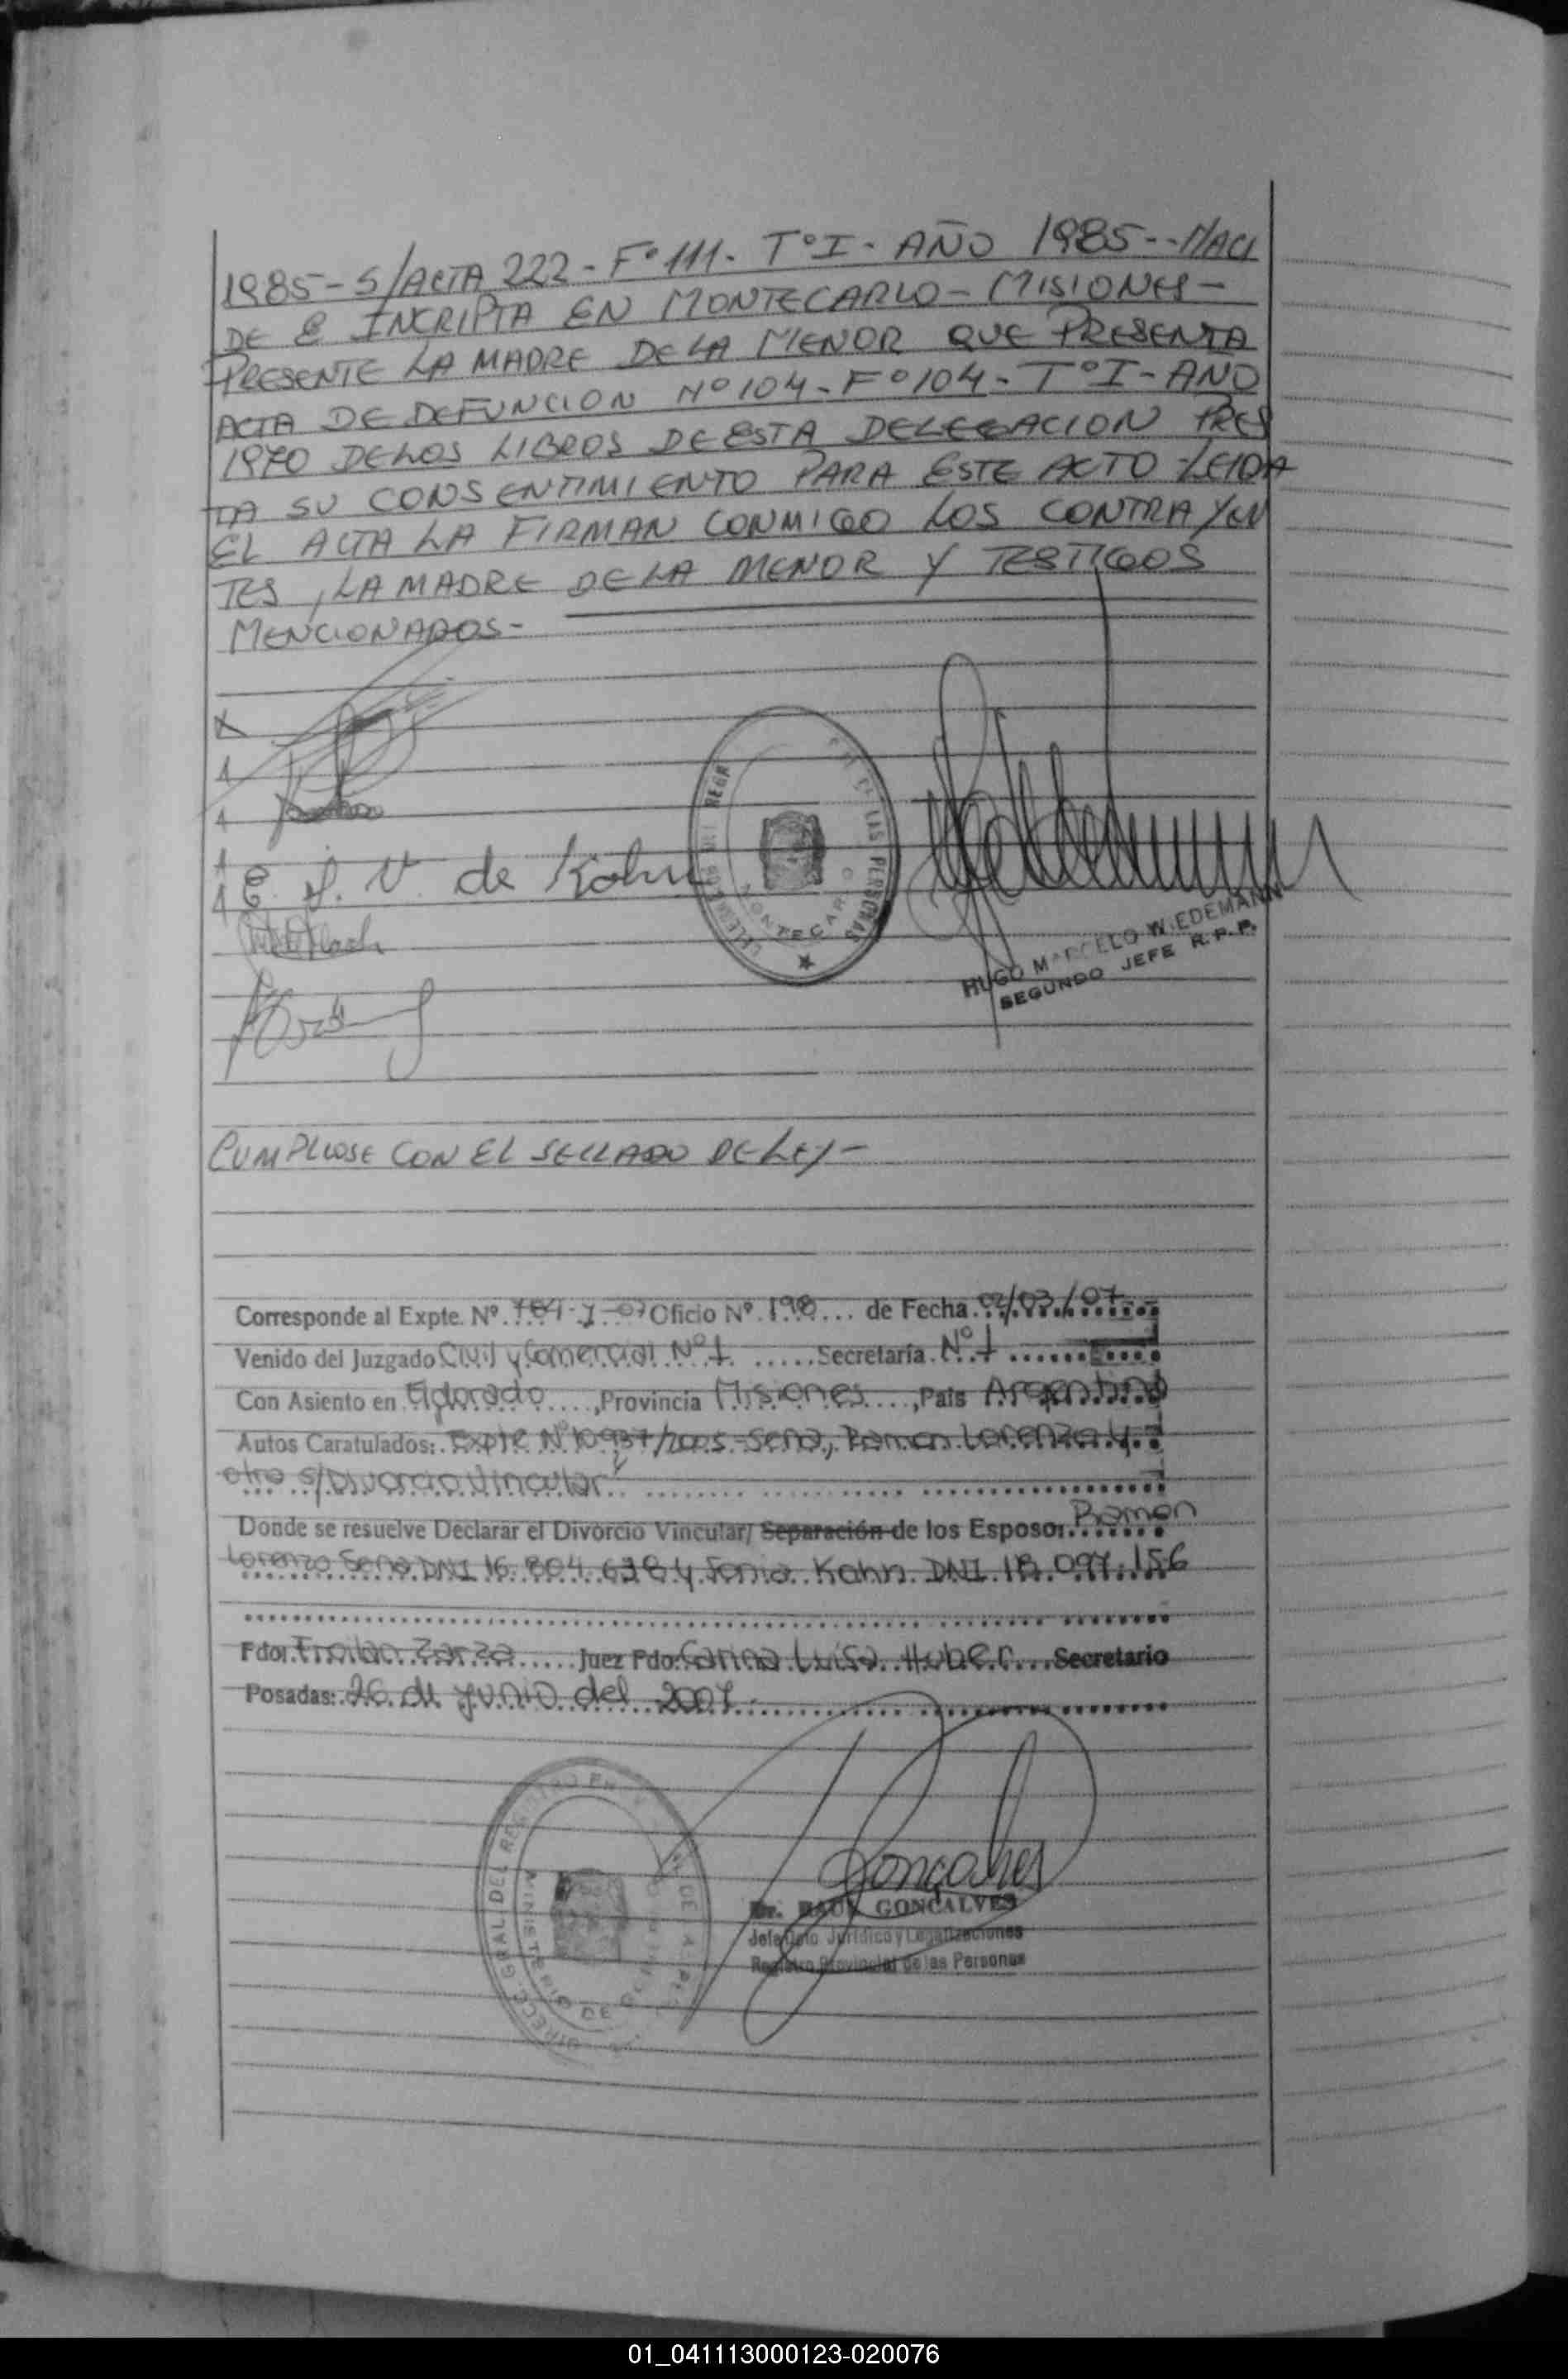 1985-S/ACTA 222-Fº111-TºI-AÑO 1985--NACI
DE E INCRIPTA EN MONTECARLO-MISIONES-
PRESENTE LA MADRE DE LA MENOR QUE PRESENTA
ACTA DE DEFUNCION Nº104-Fº104-TºI-AÑO
1970 DE LOS LIBROS DE ESTA DELEGACION PRES
TA SU CONSENTIMIENTO PARA ESTE ACTO-LEIDA
EL ACTA LA FIRMAN CONMIGO LOS CONTRAYEN
TES, LA MADRE DE LA MENOR Y TESTIGOS
MENCIONADOS-
E. J. V. de Kohn
DE LAS PERSONAS
MONTECARLO
HUGO MARCELO WIEDEMANN
SEGUNDO JEFE R.P.P.
CUMPLIOSE CON EL SELLADO DE LEY-
Corresponde al Expte. Nº. Oficio Nº. 198... de Fecha. 02/03/07
Venido del Juzgado Civil y Comercial Nº1 ......Secretaría. Nº1
Con Asiento en Eldorado....,Provincia Misiones....,País Argentina
Autos Caratulados: Expte Nº10.937/2005-Sena, Ramon Lorenzo y
otra s/Divorcio Vincular
Donde se resuelve Declarar el Divorcio Vincular/ Separación de los Esposos. Ramon
Lorenzo Sena DNI 16.804.638 y Sonia Kohn DNI 18.097.156
Fdo. Froilan Zarza......Juez Fdo. Carina Luisa Huber...Secretario
Posadas: 26 de junio del 2007.
Gonçalves
Dr. RAUL GONÇALVES
Jefe Dpto Jurídico y Legalizaciones
Registro Provincial de las Personas
01_041113000123-020076